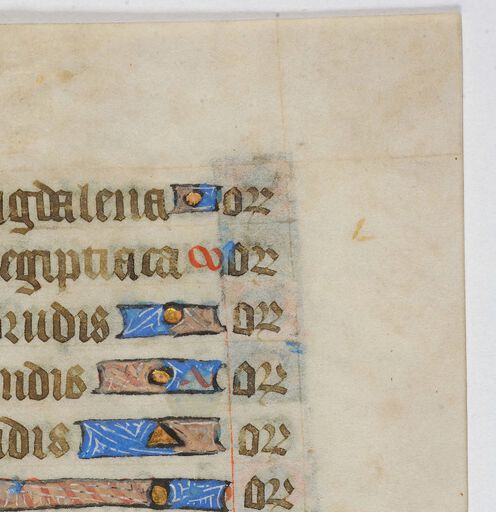 agdalena or
egiptiaca or
trudis or
ndis or
ndis or
or